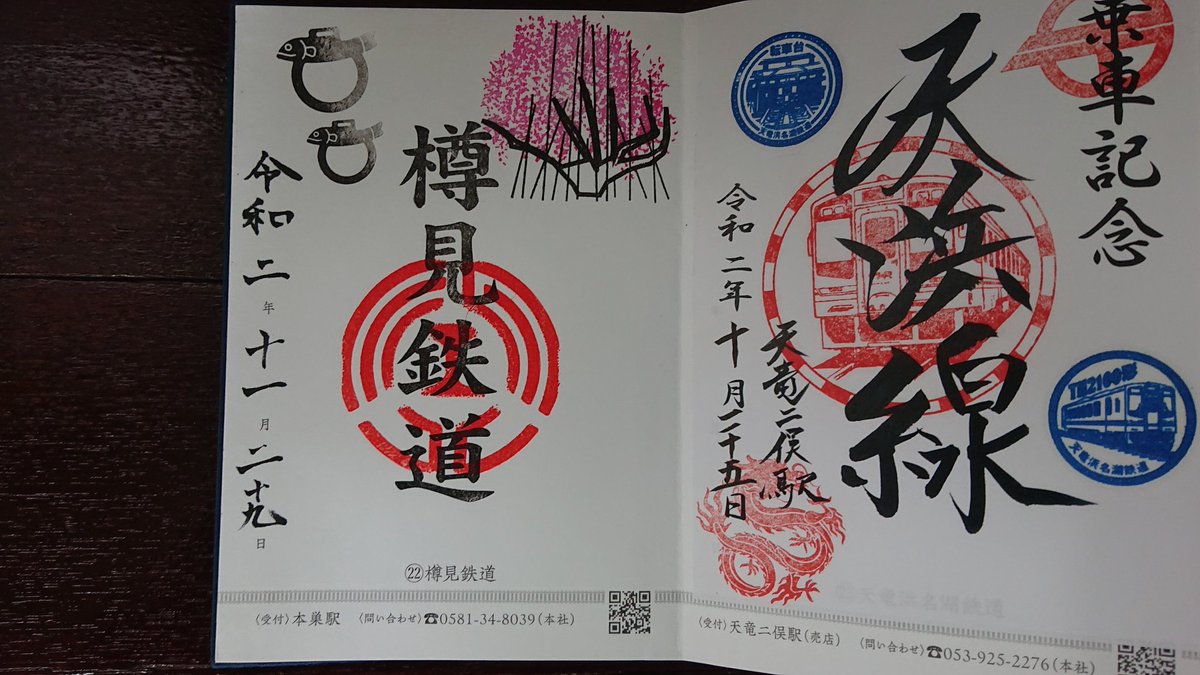 乗車記念
天浜線
転車台
天竜浜名湖鉄道
TH2100形
天竜浜名湖鉄道
天竜二俣駅
令和二年十月二十五日
〈受付〉天竜二俣駅(売店) 〈問い合わせ〉☎053-925-2276(本社)
樽見鉄道
令和二年十一月二十九日
㉒樽見鉄道
〈受付〉本巣駅 〈問い合わせ〉☎0581-34-8039(本社)